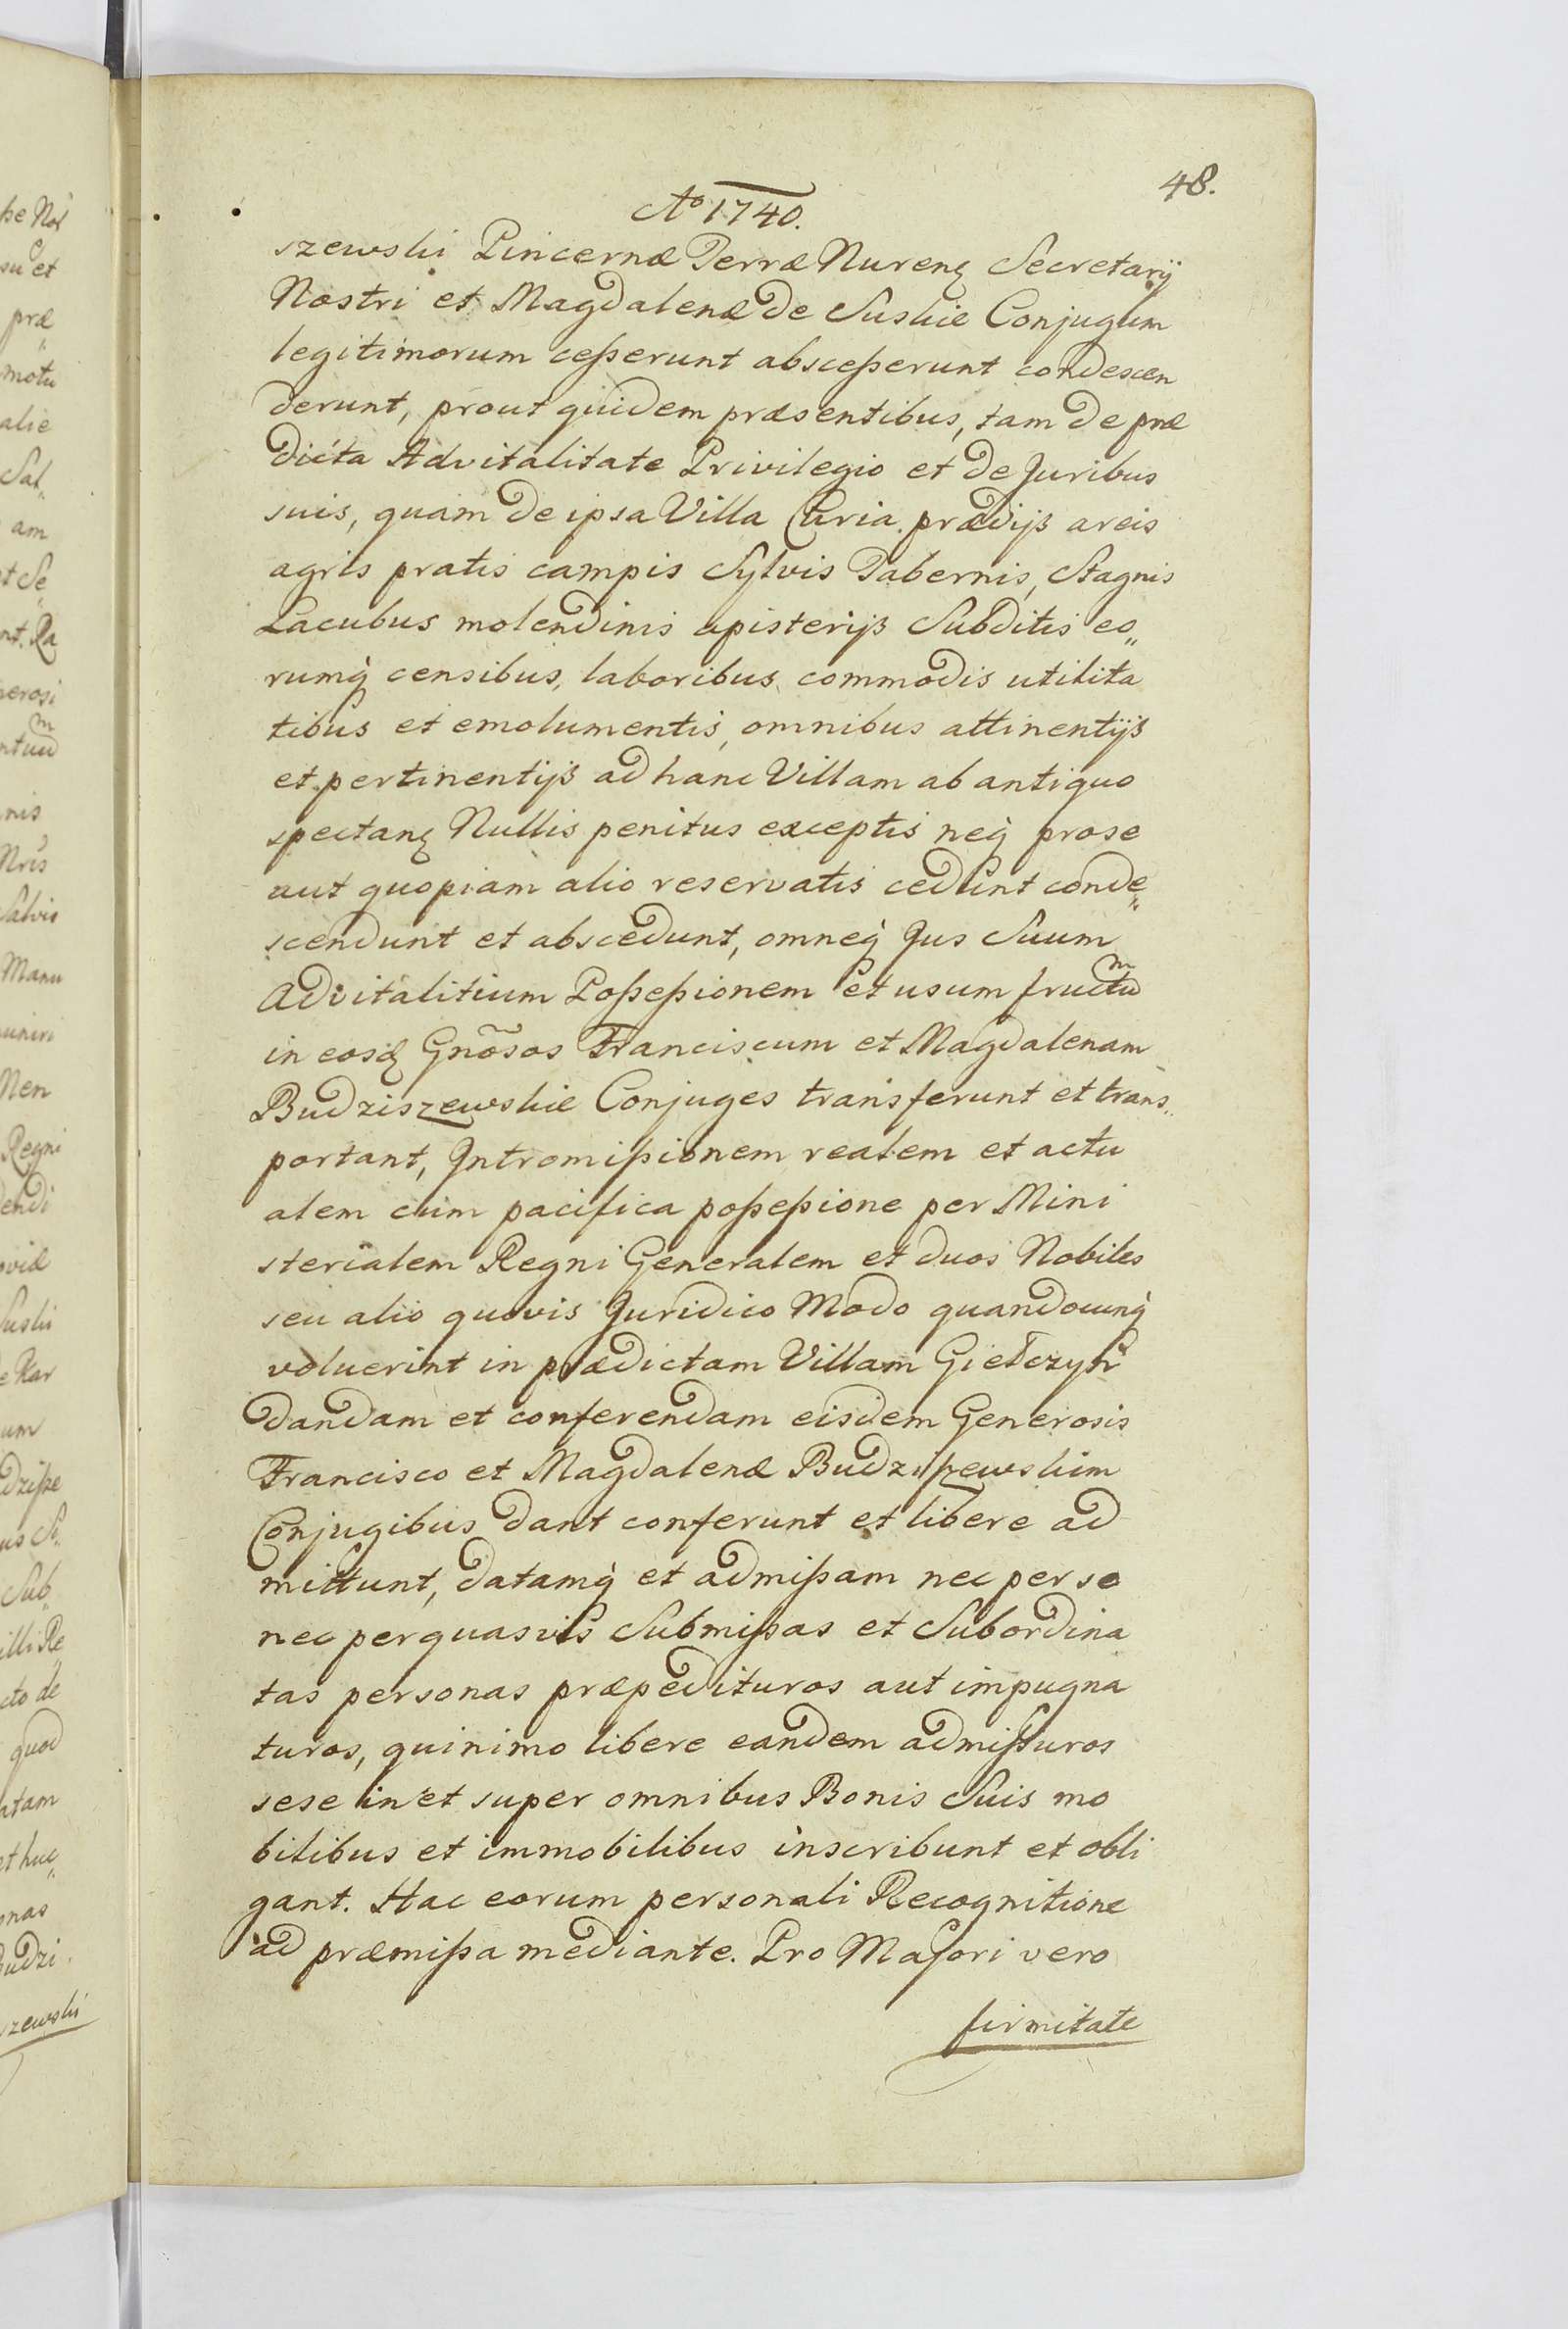 48.
Aº 1740.
szewski Pincernæ Terræ Nurenȩ Secretarij
Nostri et Magdalenæ de Suskie Conjugum
legitimorum ceßerunt absceßerunt condescen
derunt, prout quidem præsentibus, tam de præ
dicta Advitalitate Privilegio et de Juribus
suis, quam de ipsa Villa Curia prædijs areis
agris pratis campis Sylvis Tabernis, Stagnis
Lacubus molendinis apisterijs Subditis eo„
rumq̀ censibus, laboribus commodis utilita
tibus et emolumentis, omnibus attinentijs
et pertinentijs ad hanc Villam ab antiquo
spectanȩ Nullis penitus exceptis neq̀ prose
aut quopiam alio reservatis cedunt conde„
scendunt et abscedunt, omneq̀ Jus Suum
Advitalitium Poßeßionem et usum fructuᵐ
in eosꝗ Gnõsos Franciscum et Magdalenam
Budziszewskie Conjuges transferunt et trans„
portant, Intromißionem realem et actu
alem cum pacifica poßeßione per Mini
sterialem Regni Generalem et duos Nobiles
seu alio quovis Juridico Modo quandocunq̀
voluerint in prædictam Villam Giełczyn
dandam et conferendam eisdem Generosis
Francisco et Magdalenæ Budziszewskim
Conjugibus dant conferunt et libere ad
mittunt, datamq̀ et admißam nec per se
nec per quasvis Submißas et Subordina
tas personas præpedituros aut impugna
turos, quinimo libere eandem admißuros
sese in et super omnibus Bonis Suis mo
bilibus et immobilibus inscribunt et obli
gant. Hac eorum personali Recognitione
ad præmißa mediante. Pro Majori vero
firmitate